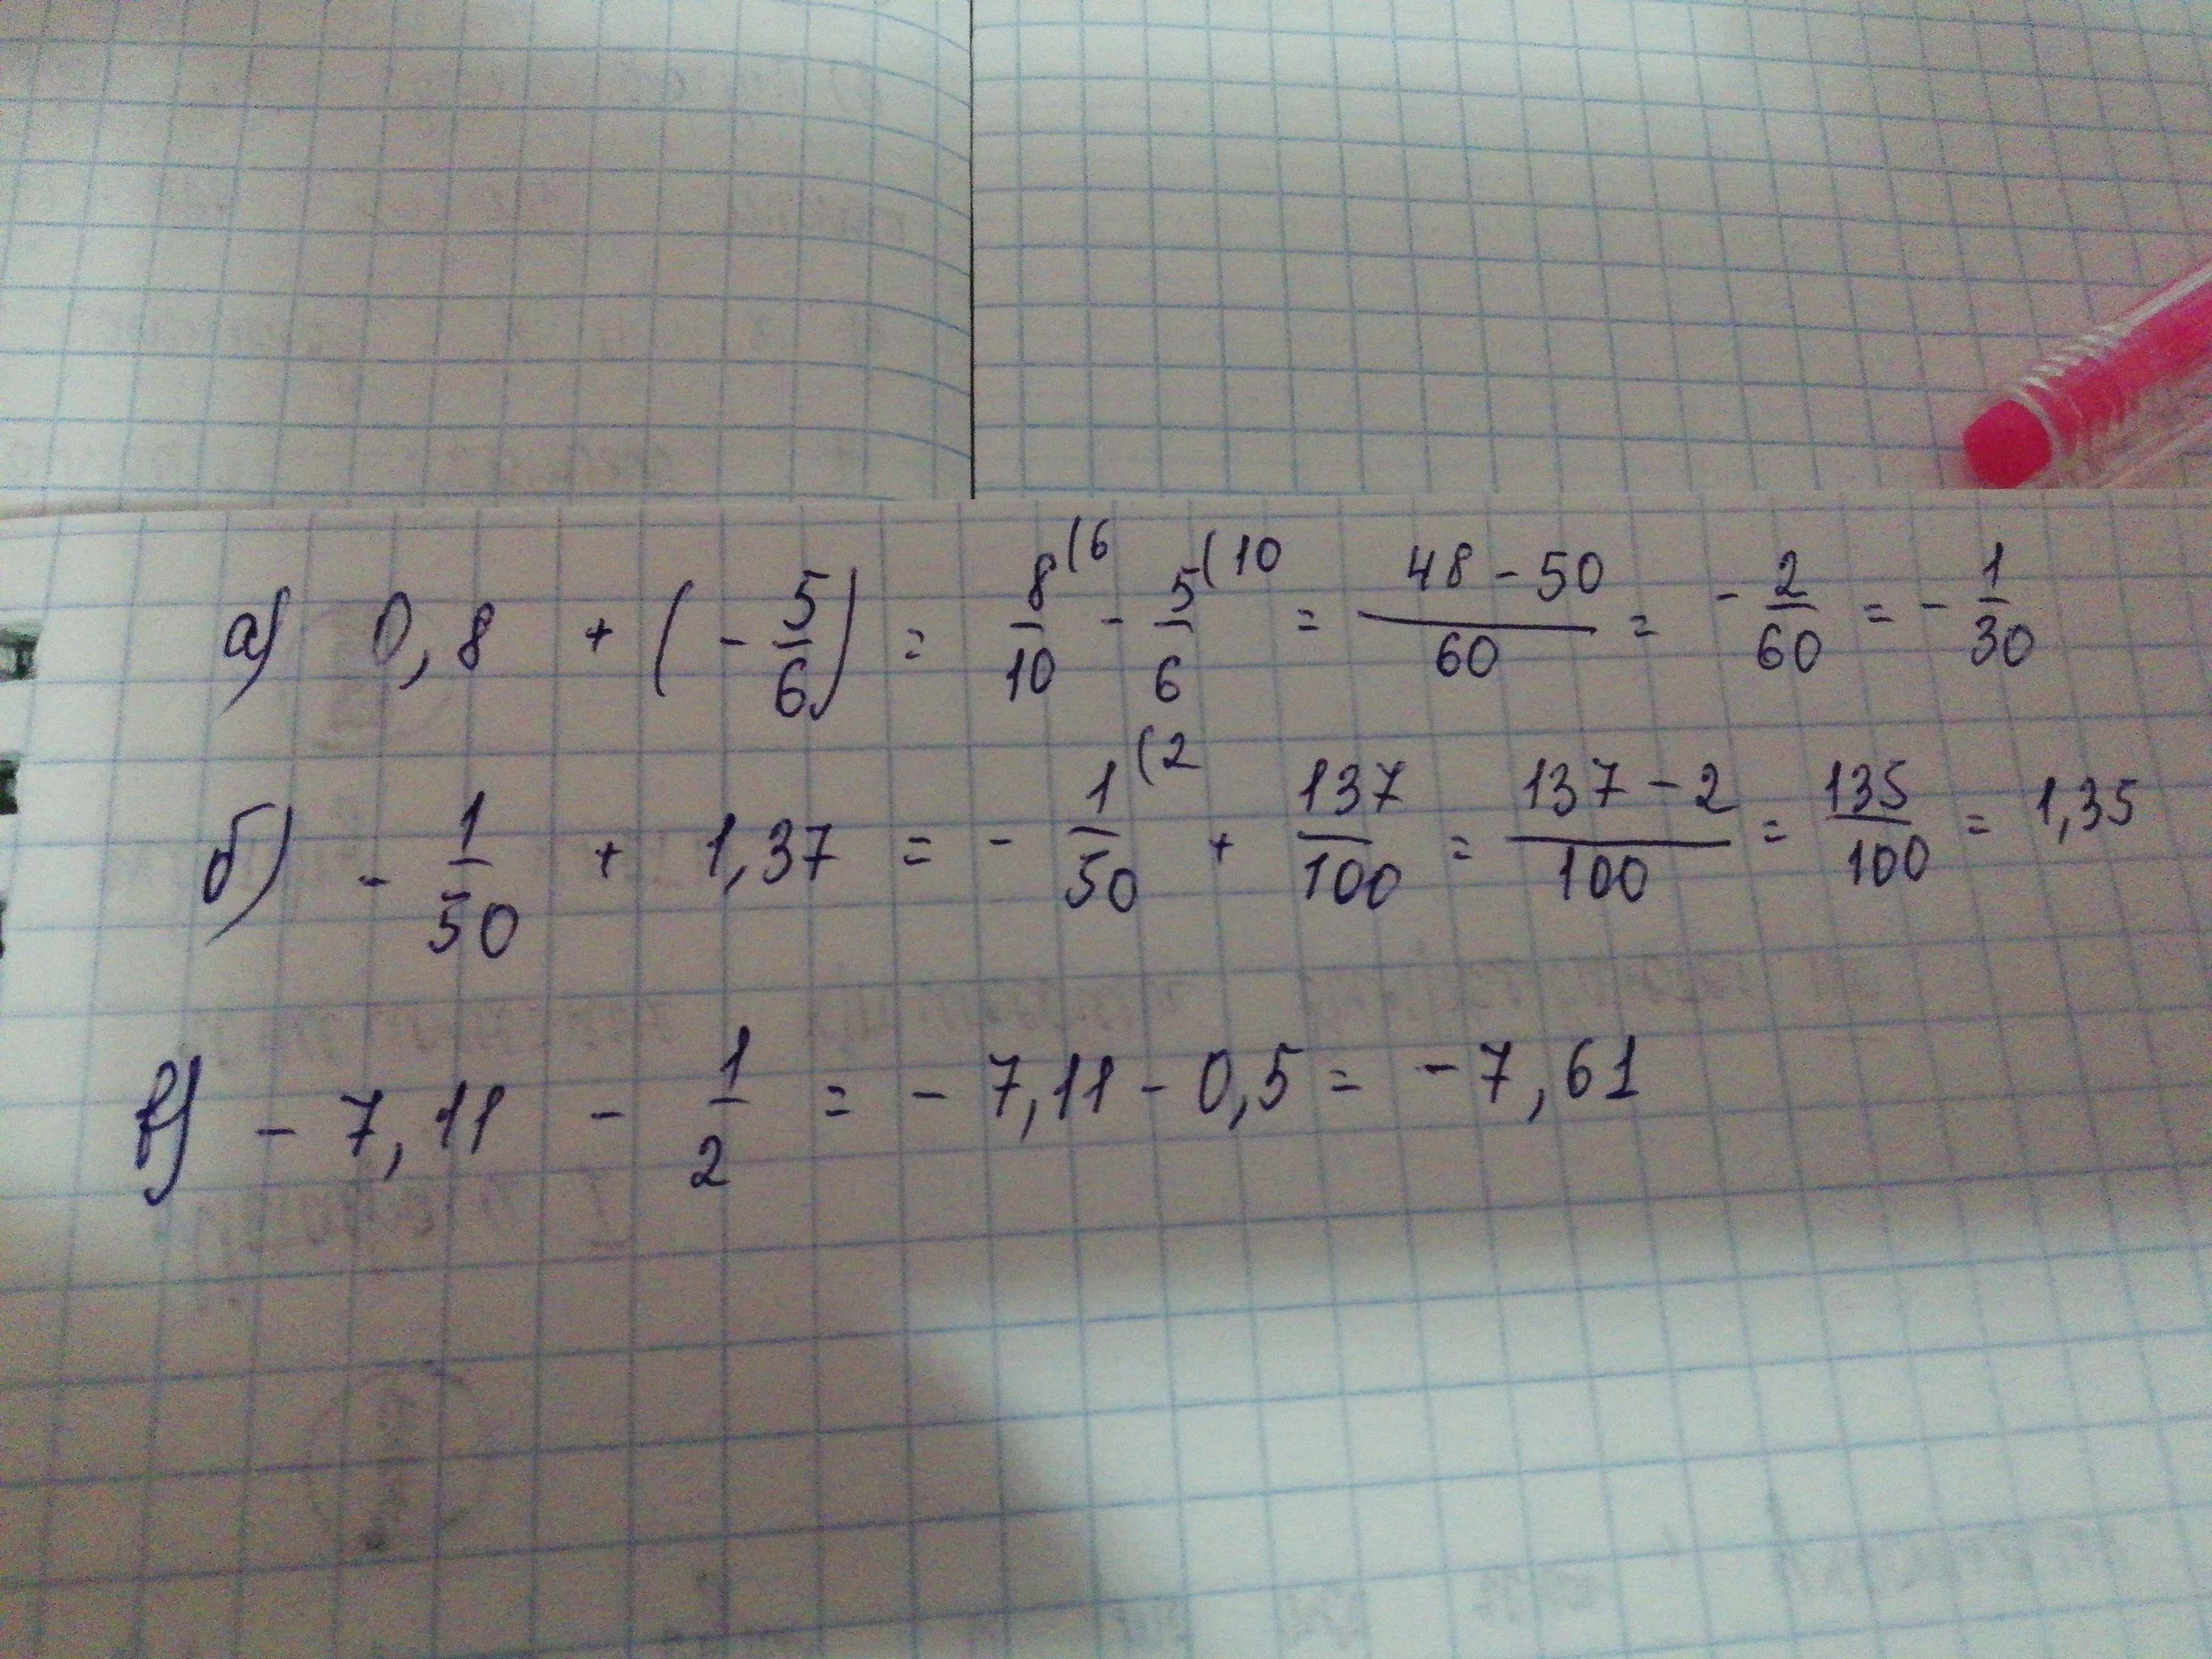 а) 0,8 + (-5/6) = 8/10 (6 - 5/6 (10 = 48-50/60 = -2/60 = -1/30
б) -1/50 + 1,37 = -1/50 (2 + 137/100 = 137-2/100 = 135/100 = 1,35
в) -7,11 - 1/2 = -7,11-0,5 = -7,61